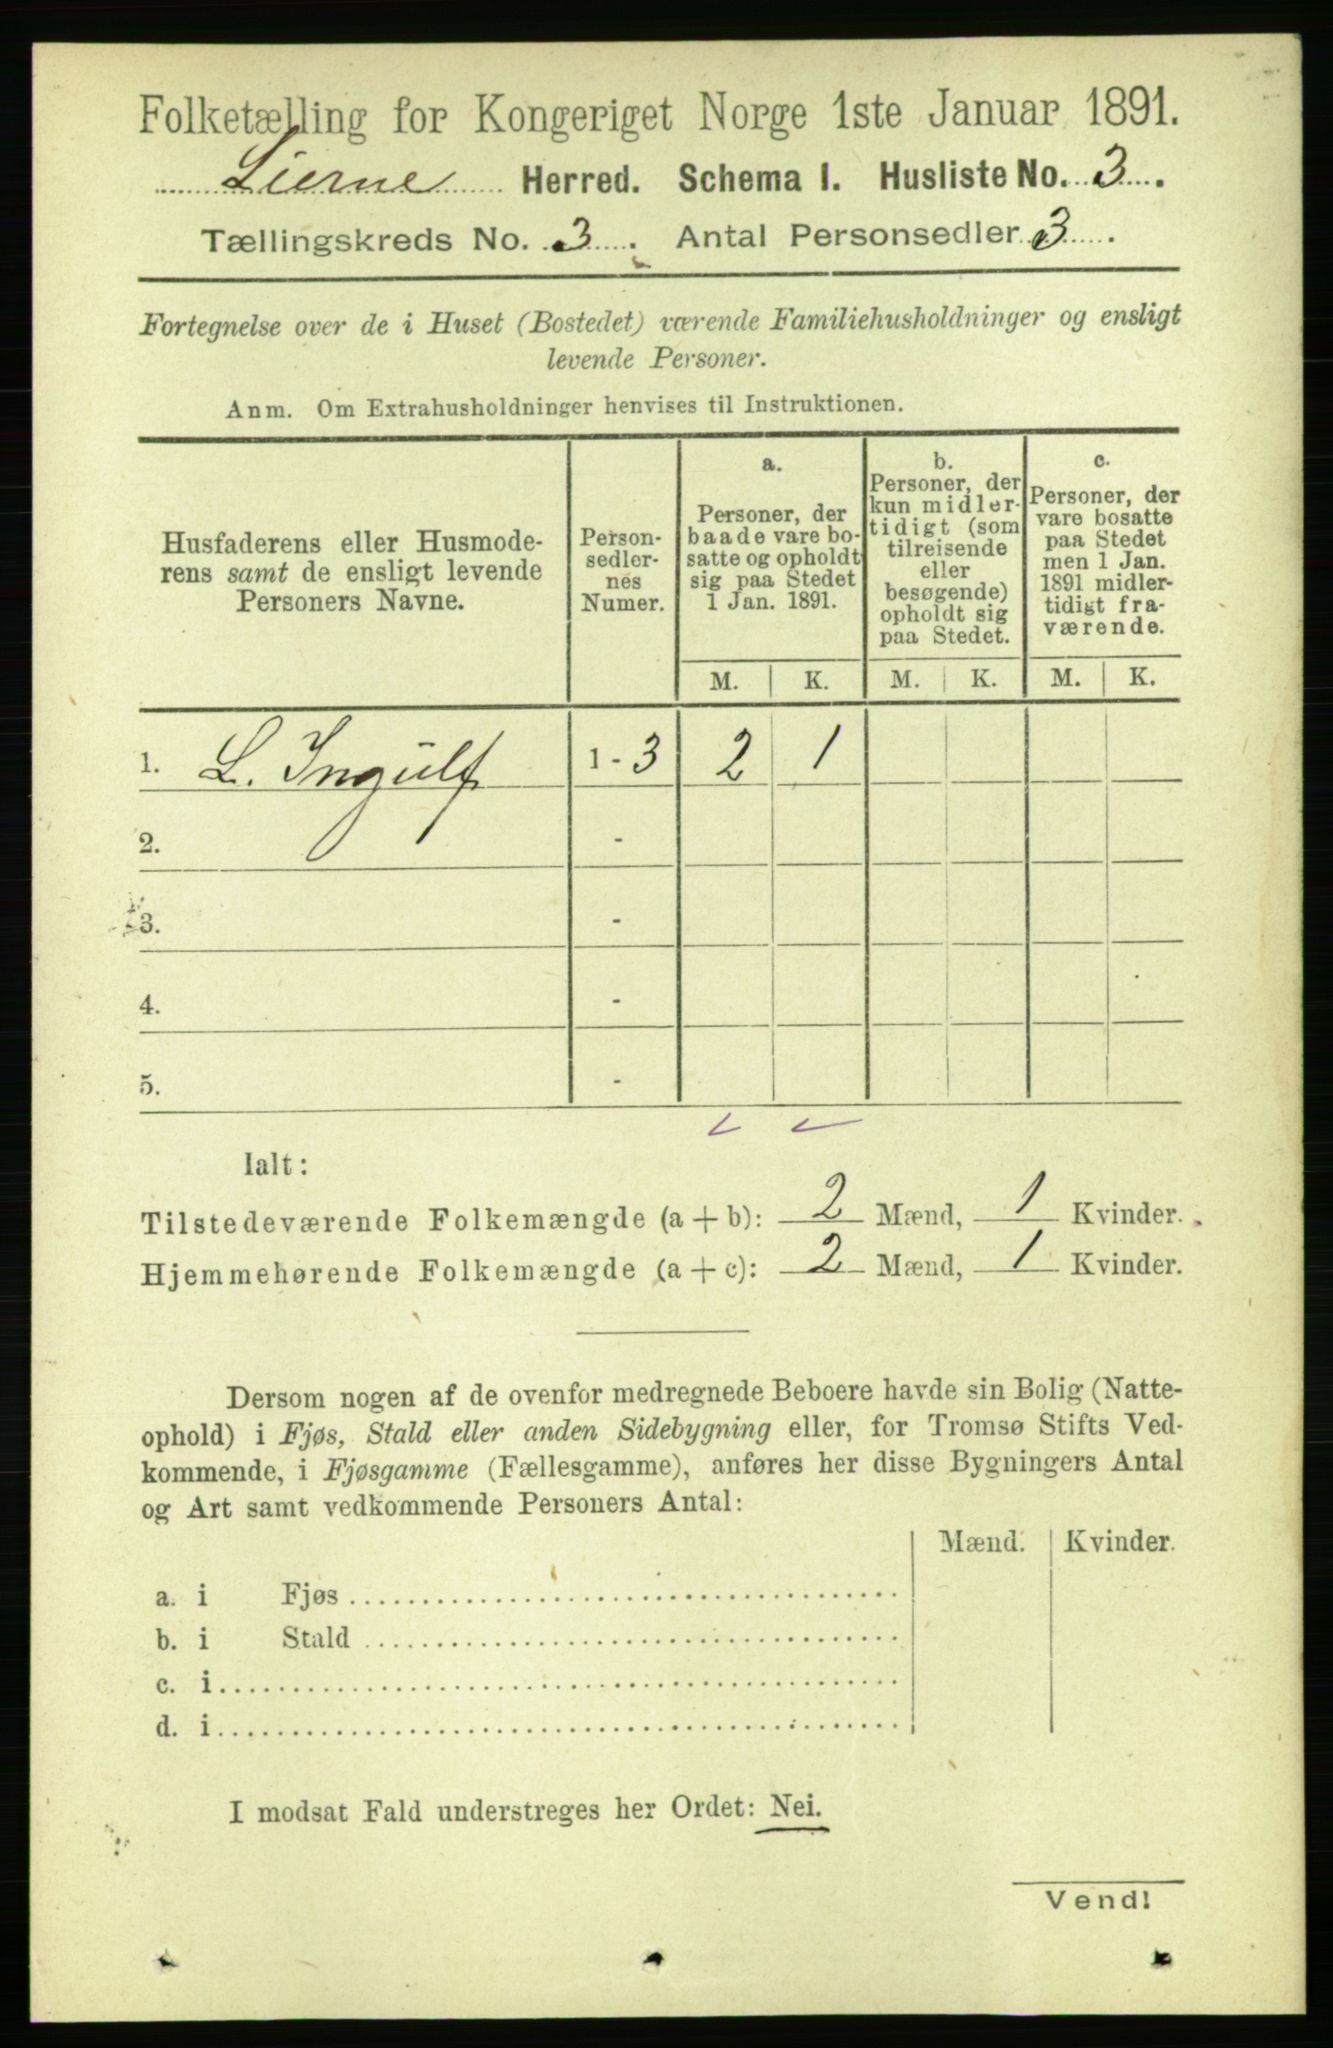 Folketælling for Kongeriget Norge 1ste Januar 1891.
Lierne Herred. Schema I. Husliste No. 3.
Tællingskreds No. 3. Antal Personsedler 3.
Fortegnelse over de i Huset (Bostedet) værende Familiehusholdninger og ensligt
levende Personer.
Anm. Om Extrahusholdninger henvises til Instruktionen.
Husfaderens eller Husmode-
rens samt de ensligt levende
Personers Navne.
Person-
sedler-
nes
Numer.
a.
Personer, der
baade vare bo-
satte og opholdt
sig paa Stedet
1 Jan. 1891.
b.
Personer, der
kun midler-
tidigt (som
tilreisende
eller
besøgende)
opholdt sig
paa Stedet.
c.
Personer, der
vare bosatte
paa Stedet
men 1 Jan.
1891 midler-
tidigt fra-
værende.
M. K. M. K. M. K.
1. L. Ingulf 1 - 3 2 1
2. -
3. -
4. -
5. -
Ialt:
Tilstedeværende Folkemængde (a + b): 2 Mænd, 1 Kvinder.
Hjemmehørende Folkemængde (a + c): 2 Mænd, 1 Kvinder.
Dersom nogen af de ovenfor medregnede Beboere havde sin Bolig (Natte-
ophold) i Fjøs, Stald eller anden Sidebygning eller, for Tromsø Stifts Ved-
kommende, i Fjøsgamme (Fællesgamme), anføres her disse Bygningers Antal
og Art samt vedkommende Personers Antal:
Mænd. Kvinder.
a. i Fjøs
b. i Stald
c. i
d. i
I modsat Fald understreges her Ordet: Nei.
Vend!